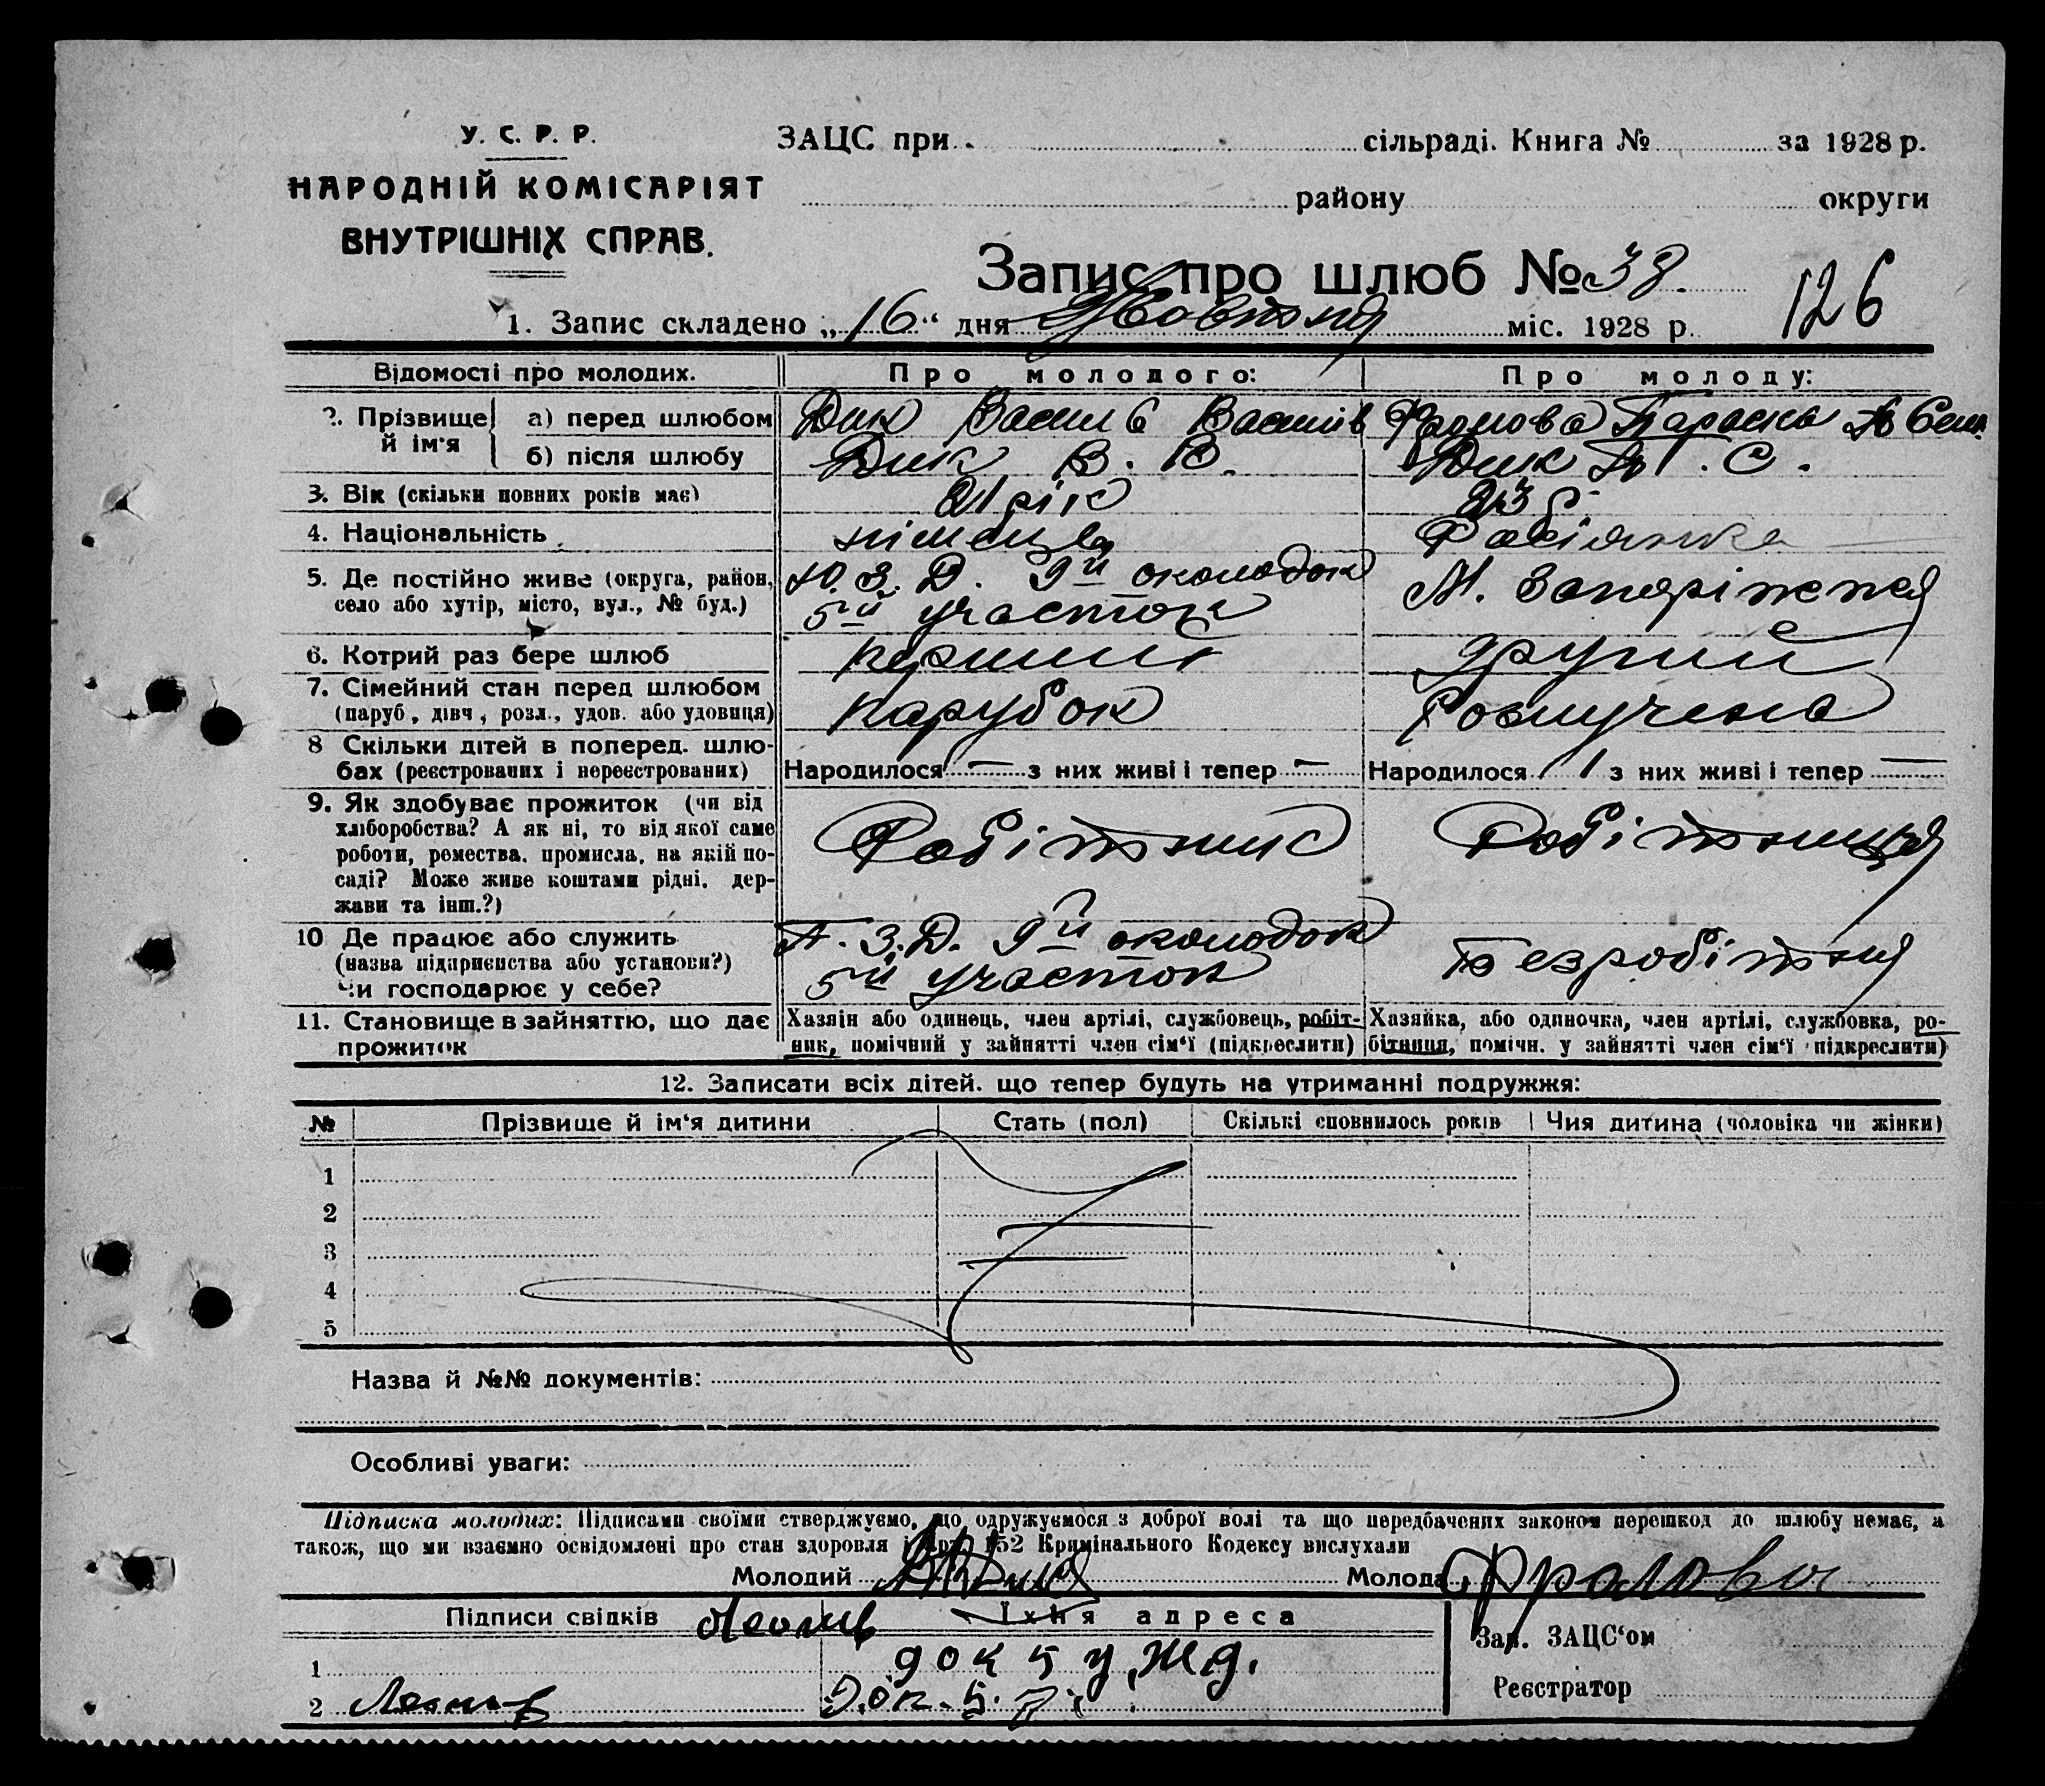 У. С. Р. Р.
НАРОДНІЙ КОМІСАРІЯТ
ВНУТРІШНІХ СПРАВ.
ЗАЦС при сільраді. Книга № за 1928 р.
району округи
Запис про шлюб № 38.
126
1. Запис складено „16" дня Жовтня міс. 1928 р.
Відомості про молодих. Про молодого: Про молоду:
2. Прізвище й ім'я
а) перед шлюбом Дик Василь Василів Фролова Параска Сем.
б) після шлюбу Дик В. В. Дик П. С.
3. Вік (скільки повних років має) 21 рік 23 р.
4. Національність німець Росіянка
5. Де постійно живе (округа, район, село або хутір, місто, вул., № буд.)
Ю. З. Д. 9й околодок
5ий участок
М. Запоріжжя
6. Котрий раз бере шлюб перший другий
7. Сімейний стан перед шлюбом (паруб., дівч., розл., удов. або удовиця) парубок Розлучена
8 Скільки дітей в поперед. шлюбах (реєстрованих і нереєстрованих)
Народилося — з них живі і тепер — Народилося 1 з них живі і тепер —
9. Як здобуває прожиток (чи від хліборобства? А як ні, то від якої саме роботи, ремества, промисла, на якій посаді? Може живе коштами рідні, держави та інш.?)
Робітник Робітниця
10 Де працює або служить (назва підприємства або установи?) Чи господарює у себе?
П. З. Д. 9й околодок
5ий участок
Безробітня
11. Становище в зайняттю, що дає прожиток
Хазяїн або одинець, член артілі, службовець, робітник, помічний у зайнятті член сім'ї (підкреслити)
Хазяйка, або одиночка, член артілі, службовка, робітниця, помічн. у зайнятті член сім'ї підкреслити)
12. Записати всіх дітей. що тепер будуть на утриманні подружжя:
№ Прізвище й ім'я дитини Стать (пол) Скількі сповнилось років Чия дитина (чоловіка чи жінки)
1
2
3
4
5
Назва й №№ документів:
Особливі уваги:
Підписка молодих: Підписами своїми стверджуємо, що одружуємося з доброї волі та що передбачених законом перешкод до шлюбу немає, а
також, що ми взаємно освідомлені про стан здоровля і арт. 152 Кримінального Кодексу вислухали
Молодий Дик Молода Фролова
Підписи свідків Їхня адреса
Зав. ЗАЦС'ом
1 док 5 у. Жд.
2 Док. 5.
Реєстратор